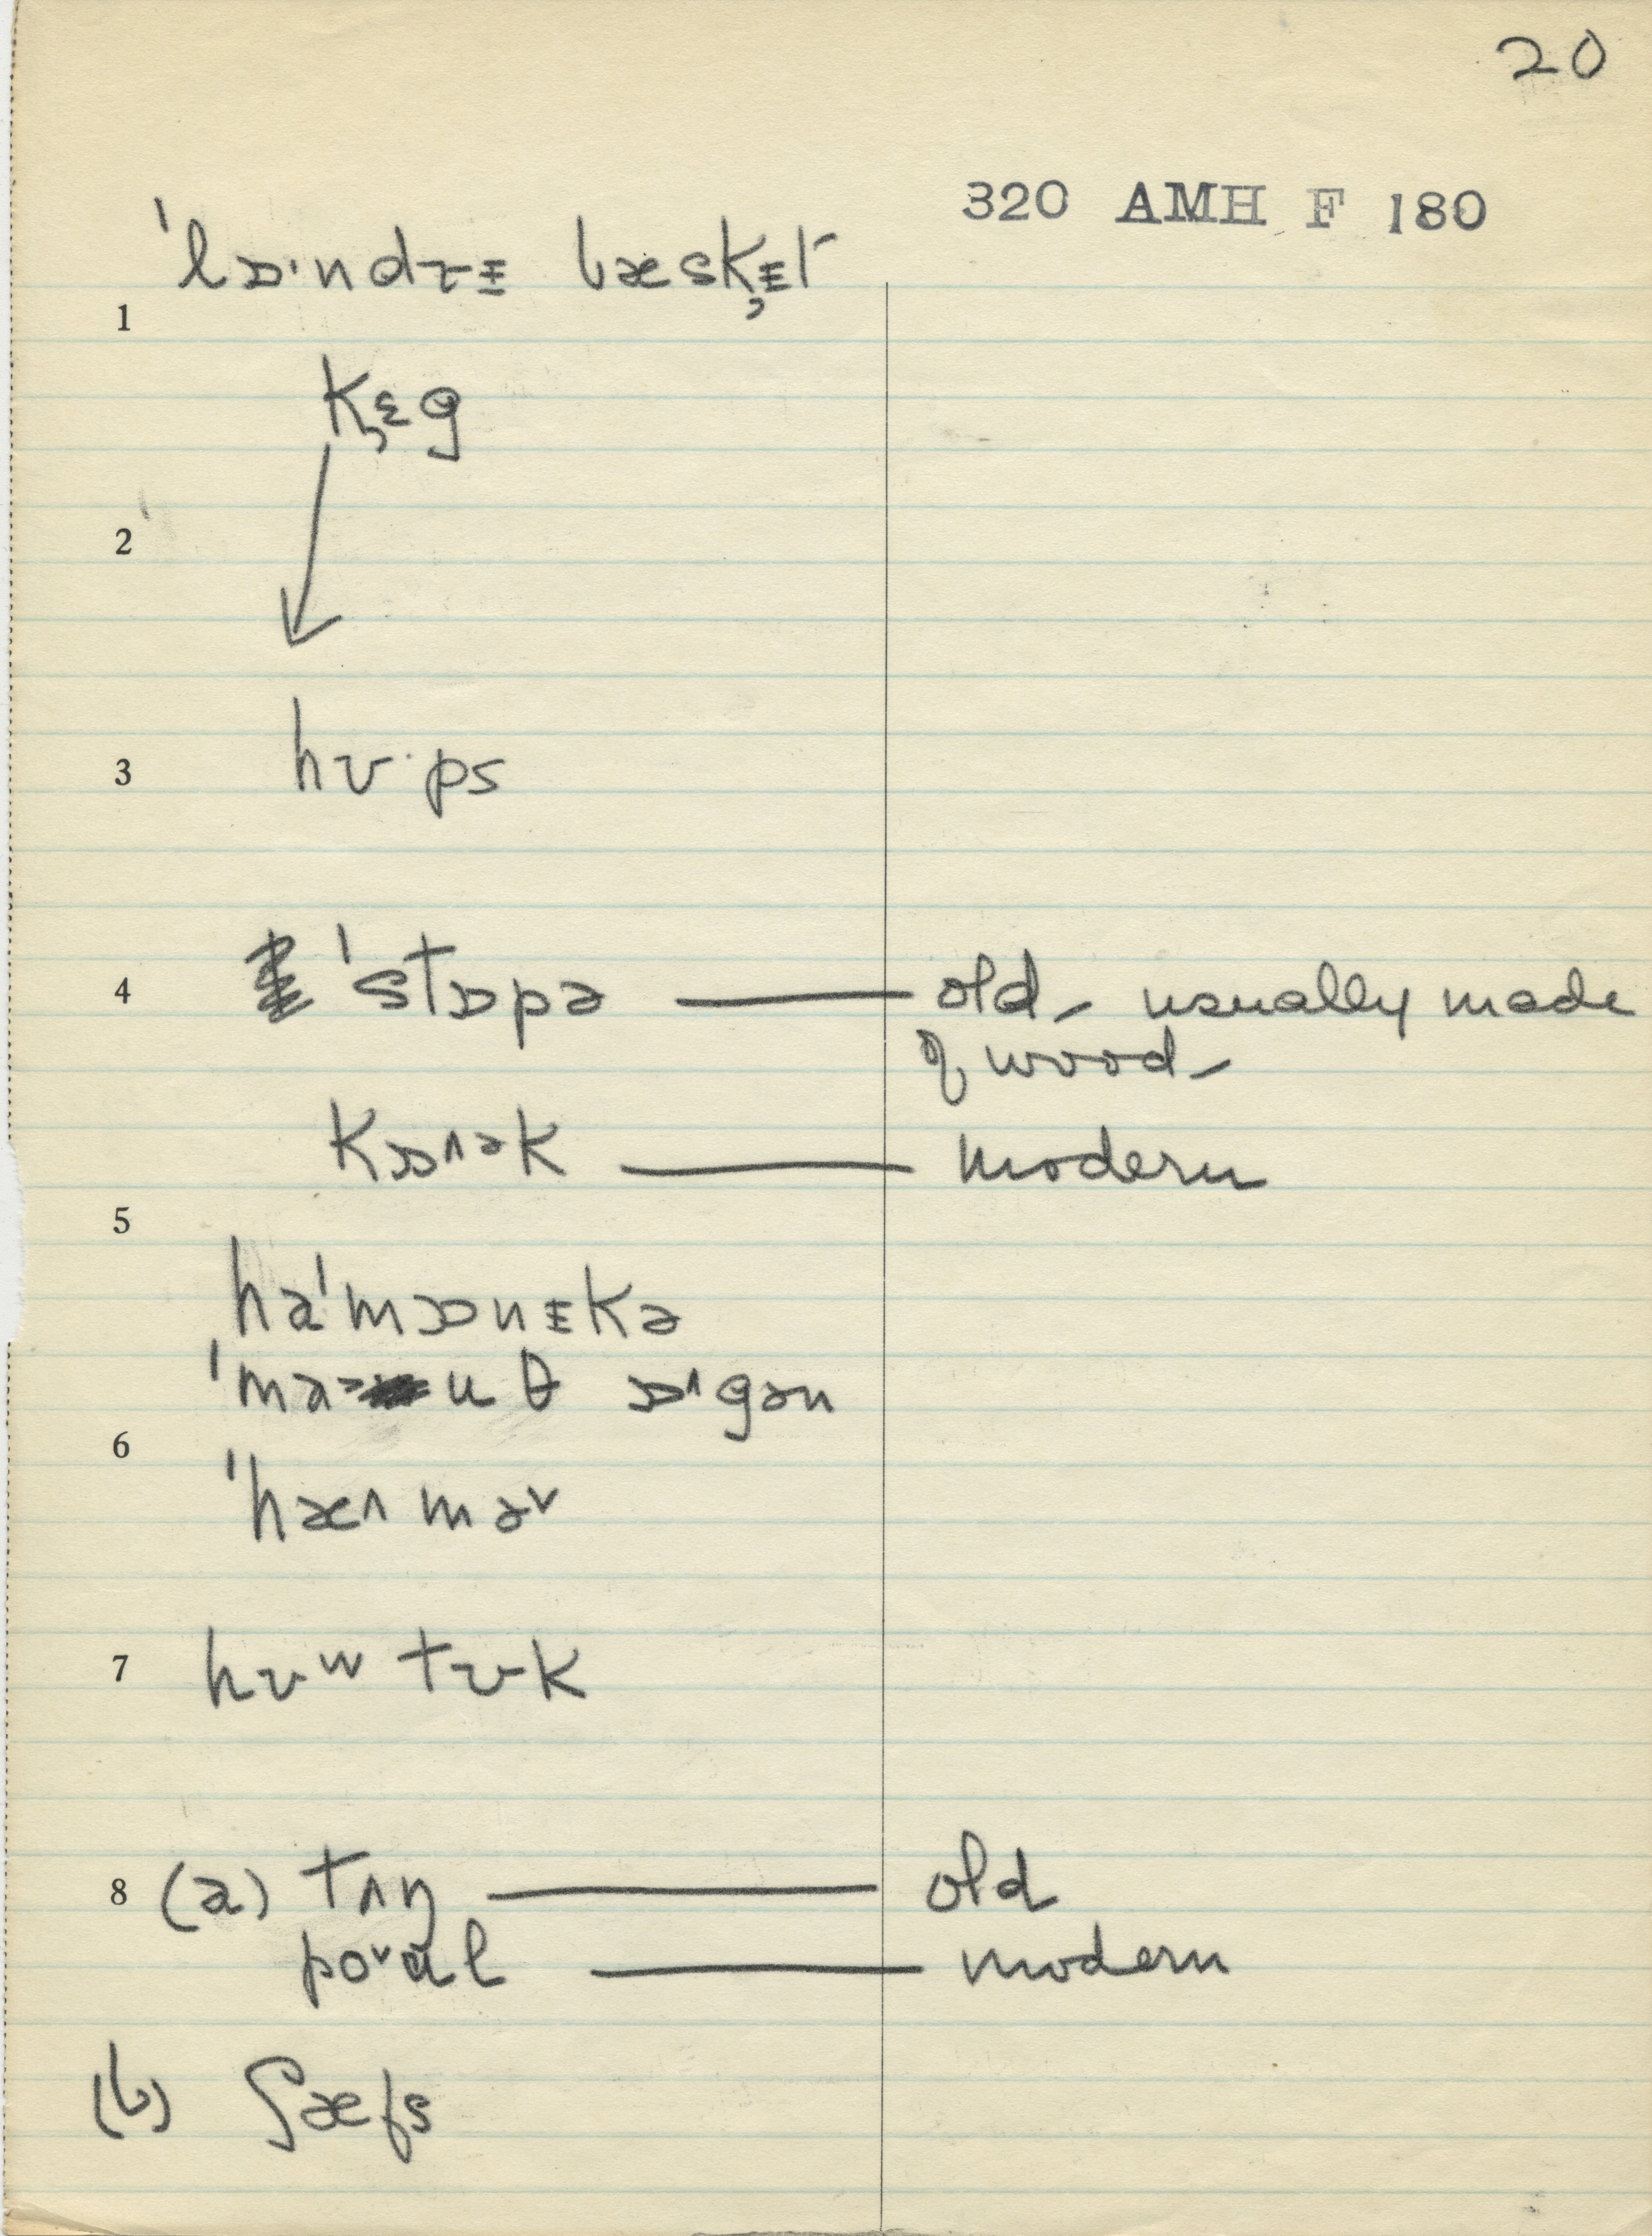 20
320 AMH F 180
ˈlɒ·ndrᵻ bæsk̡ᵻt
1
k̡ɛg
2
3 hʊ·ps
4 ˈstɒpə — old, usually made
of wood –
kɒɹək — modern
5
haˈmɒnᵻkə
ˈmaᵊuθ ɒˑ^gən
6
ˈhæ^məᵛ
7 hʊʷtʊk
8 (a) tʌŋ — old
poᵛɑl — modern
(b) ʃæfs